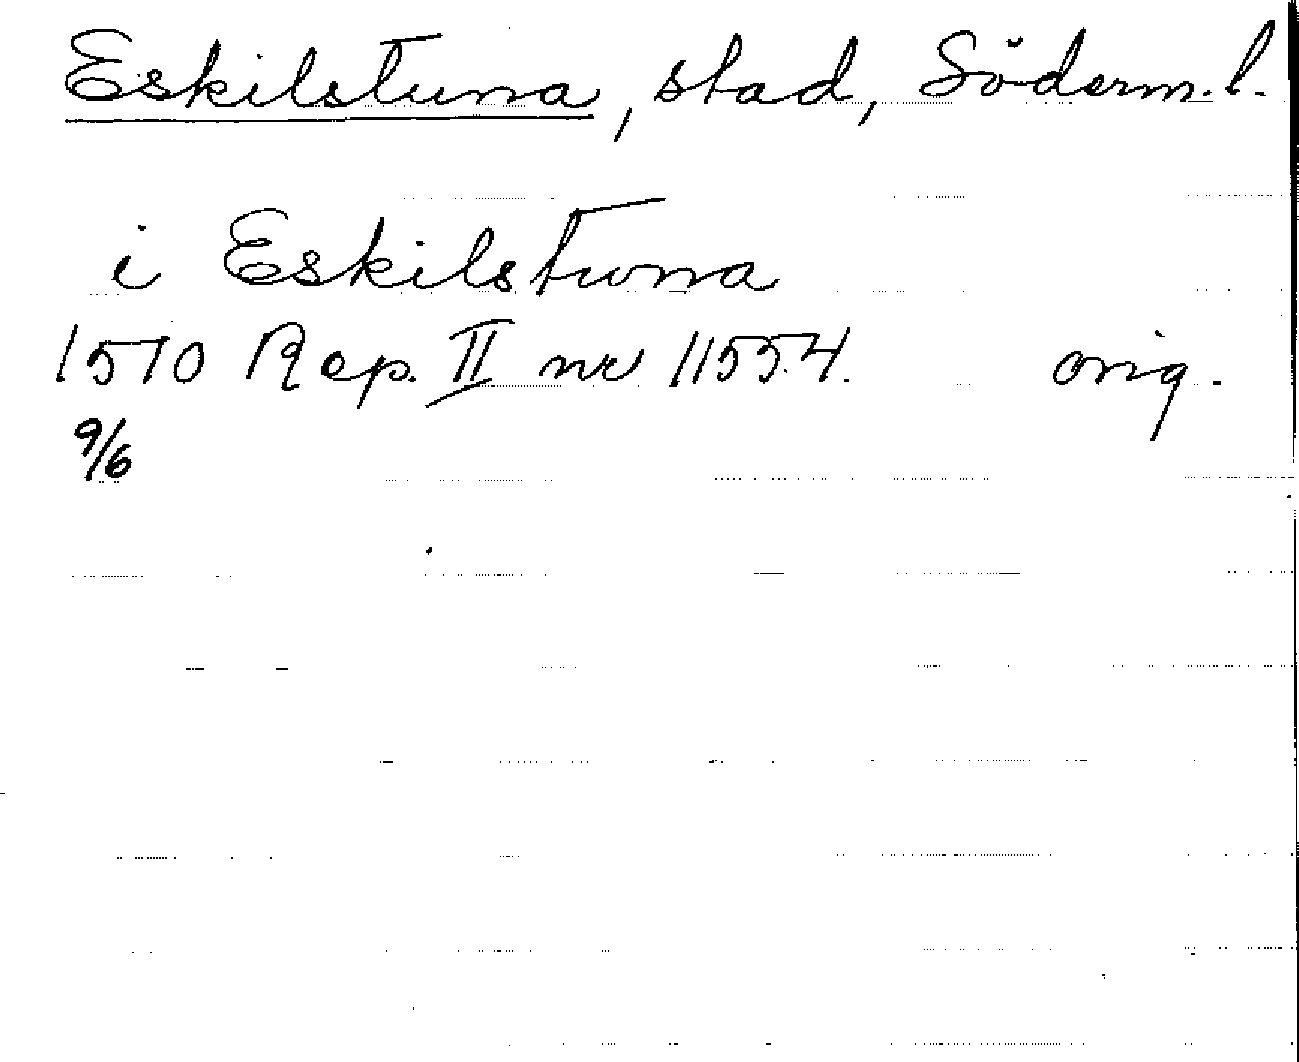 Eskilstuna, stad, Söderm.l.
i Eskilstuna
1510 Rep. II nr 11554. orig.
9/6